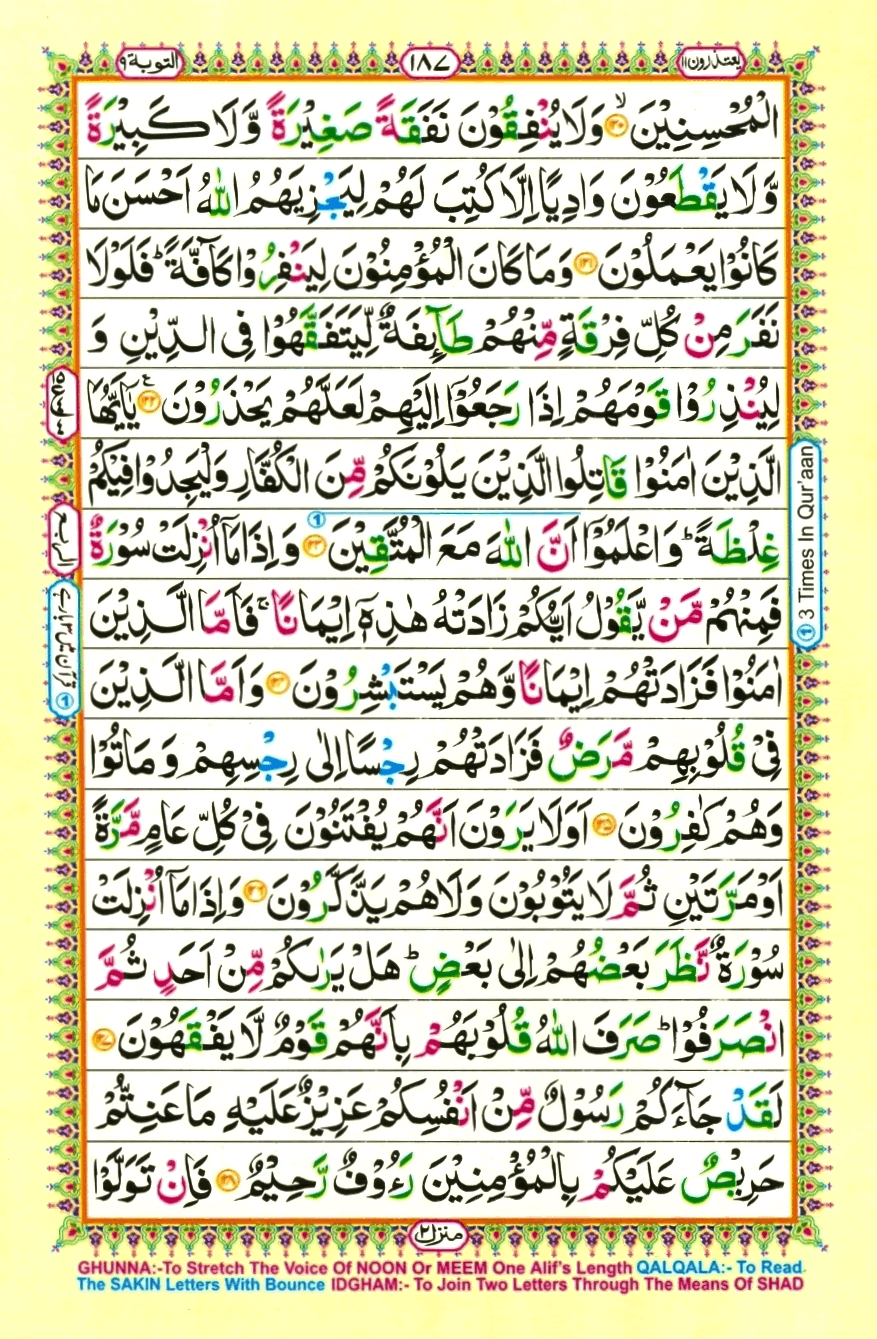 التوبة ٩
١٨٧
یعتذرون ١١
الْمُحْسِنِیْنَ ﴿١٢٠﴾ۙ وَلَا یُنْفِقُوْنَ نَفَقَةً صَغِیْرَةً وَّلَا كَبِیْرَةً
وَّلَا یَقْطَعُوْنَ وَادِیًا اِلَّا كُتِبَ لَهُمْ لِیَجْزِیَهُمُ اللّٰهُ اَحْسَنَ مَا
كَانُوْا یَعْمَلُوْنَ ﴿١٢١﴾ وَمَا كَانَ الْمُؤْمِنُوْنَ لِیَنْفِرُوْا كَآفَّةً ؕ فَلَوْلَا
نَفَرَ مِنْ كُلِّ فِرْقَةٍ مِّنْهُمْ طَآىِٕفَةٌ لِّیَتَفَقَّهُوْا فِی الدِّیْنِ وَ
لِیُنْذِرُوْا قَوْمَهُمْ اِذَا رَجَعُوْۤا اِلَیْهِمْ لَعَلَّهُمْ یَحْذَرُوْنَ ﴿١٢٢﴾ یٰۤاَیُّهَا
الَّذِیْنَ اٰمَنُوْا قَاتِلُوا الَّذِیْنَ یَلُوْنَكُمْ مِّنَ الْكُفَّارِ وَلْیَجِدُوْا فِیْكُمْ
غِلْظَةً ؕ وَاعْلَمُوْۤا اَنَّ اللّٰهَ مَعَ الْمُتَّقِیْنَ ﴿١٢٣﴾ وَاِذَا مَاۤ اُنْزِلَتْ سُوْرَةٌ
فَمِنْهُمْ مَّنْ یَّقُوْلُ اَیُّكُمْ زَادَتْهُ هٰذِهٖۤ اِیْمَانًا ۚ فَاَمَّا الَّذِیْنَ
اٰمَنُوْا فَزَادَتْهُمْ اِیْمَانًا وَّهُمْ یَسْتَبْشِرُوْنَ ﴿١٢٤﴾ وَاَمَّا الَّذِیْنَ
فِیْ قُلُوْبِهِمْ مَّرَضٌ فَزَادَتْهُمْ رِجْسًا اِلٰی رِجْسِهِمْ وَمَاتُوْا
وَهُمْ كٰفِرُوْنَ ﴿١٢٥﴾ اَوَلَا یَرَوْنَ اَنَّهُمْ یُفْتَنُوْنَ فِیْ كُلِّ عَامٍ مَّرَّةً
اَوْ مَرَّتَیْنِ ثُمَّ لَا یَتُوْبُوْنَ وَلَا هُمْ یَذَّكَّرُوْنَ ﴿١٢٦﴾ وَاِذَا مَاۤ اُنْزِلَتْ
سُوْرَةٌ نَّظَرَ بَعْضُهُمْ اِلٰی بَعْضٍ ؕ هَلْ یَرٰىكُمْ مِّنْ اَحَدٍ ثُمَّ
انْصَرَفُوْا ؕ صَرَفَ اللّٰهُ قُلُوْبَهُمْ بِاَنَّهُمْ قَوْمٌ لَّا یَفْقَهُوْنَ ﴿١٢٧﴾
لَقَدْ جَآءَكُمْ رَسُوْلٌ مِّنْ اَنْفُسِكُمْ عَزِیْزٌ عَلَیْهِ مَا عَنِتُّمْ
حَرِیْصٌ عَلَیْكُمْ بِالْمُؤْمِنِیْنَ رَءُوْفٌ رَّحِیْمٌ ﴿١٢٨﴾ فَاِنْ تَوَلَّوْا
الربع
① 3 Times In Qur'aan
منزل ٢
GHUNNA:-To Stretch The Voice Of NOON Or MEEM One Alif's Length QALQALA:- To Read
The SAKIN Letters With Bounce IDGHAM:- To Join Two Letters Through The Means Of SHAD